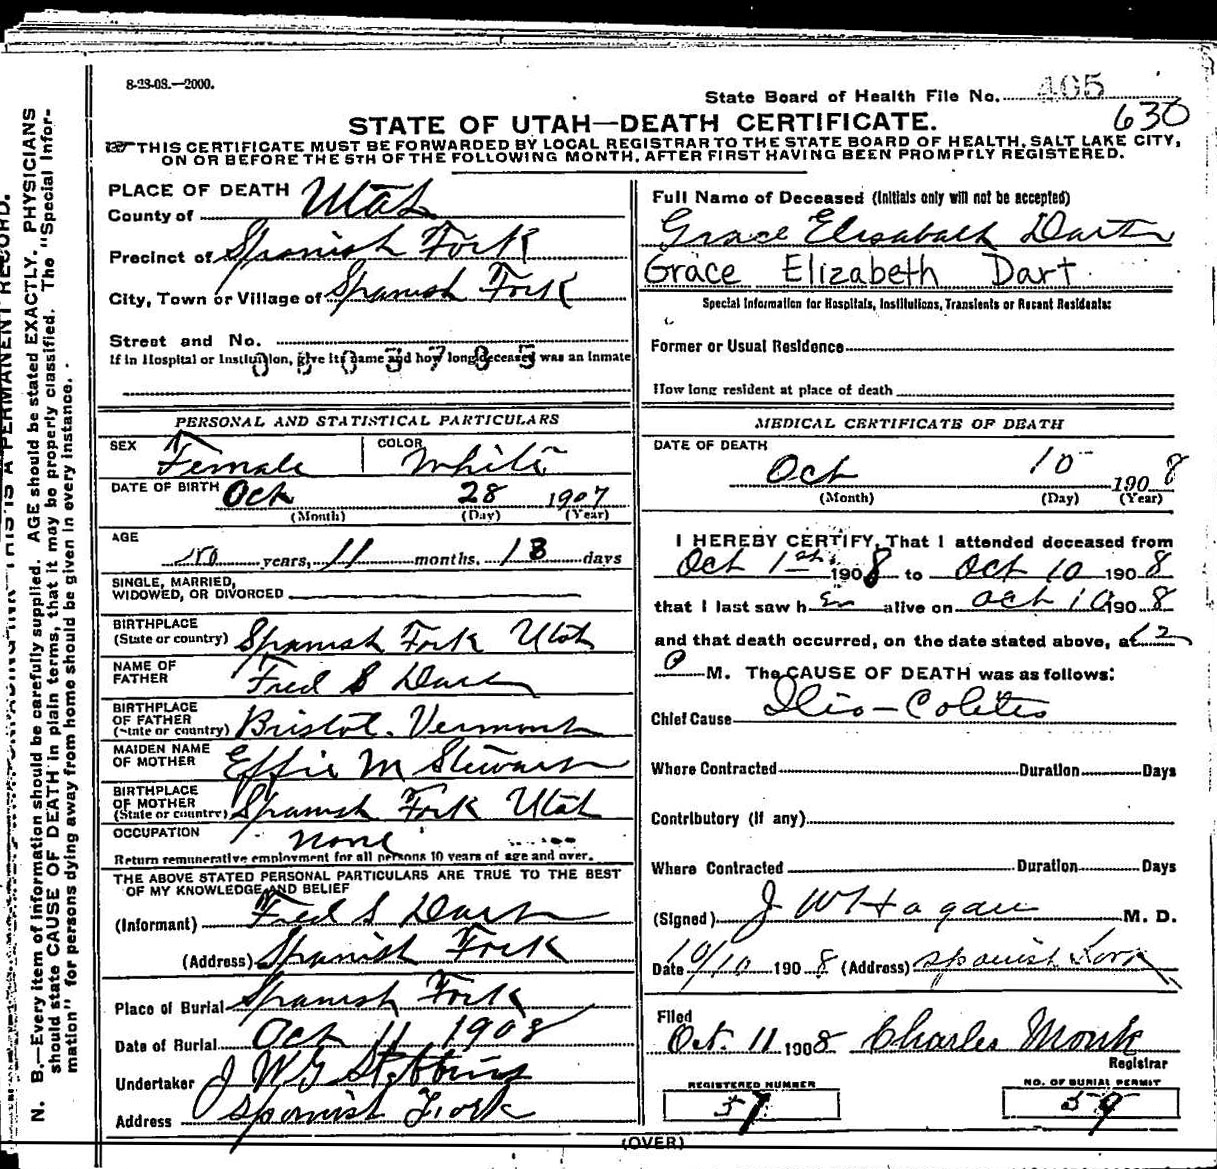 8-23-08.—2000.
State Board of Health File No. 465
630
STATE OF UTAH—DEATH CERTIFICATE.
THIS CERTIFICATE MUST BE FORWARDED BY LOCAL REGISTRAR TO THE STATE BOARD OF HEALTH, SALT LAKE CITY,
ON OR BEFORE THE 5TH OF THE FOLLOWING MONTH, AFTER FIRST HAVING BEEN PROMPTLY REGISTERED.
PLACE OF DEATH
County of Utah
Precinct of Spanish Fork
City, Town or Village of Spanish Fork
Street and No.
If in Hospital or Institution, give its name and how long deceased was an inmate
0505785
PERSONAL AND STATISTICAL PARTICULARS
SEX Female COLOR White
DATE OF BIRTH Oct 28 1907
(Month) (Day) (Year)
AGE
no years, 11 months, 13 days
SINGLE, MARRIED,
WIDOWED, OR DIVORCED
BIRTHPLACE
(State or country) Spanish Fork Utah
NAME OF
FATHER Fred S Dart
BIRTHPLACE
OF FATHER
(State or country) Bristol. Vermont
MAIDEN NAME
OF MOTHER Effie M Stewart
BIRTHPLACE
OF MOTHER
(State or country) Spanish Fork Utah
OCCUPATION none
Return remunerative employment for all persons 10 years of age and over.
THE ABOVE STATED PERSONAL PARTICULARS ARE TRUE TO THE BEST
OF MY KNOWLEDGE AND BELIEF
(Informant) Fred S Dart
(Address) Spanish Fork
Place of Burial Spanish Fork
Date of Burial Oct 11 1908
Undertaker J W G Stebbins
Address Spanish Fork
Full Name of Deceased (Initials only will not be accepted)
Grace Elisabath Dart
Grace Elizabeth Dart
Special Information for Hospitals, Institutions, Transients or Recent Residents:
Former or Usual Residence
How long resident at place of death
MEDICAL CERTIFICATE OF DEATH
DATE OF DEATH
Oct 10 1908
(Month) (Day) (Year)
I HEREBY CERTIFY, That I attended deceased from
Oct 1st 1908 to Oct 10 1908
that I last saw h er alive on Oct 10 1908
and that death occurred, on the date stated above, at 12
P M. The CAUSE OF DEATH was as follows:
Chief Cause Ilio-Colitis
Where Contracted Duration Days
Contributory (if any)
Where Contracted Duration Days
(Signed) J W Hagan M. D.
Date 10/10 1908 (Address) Spanish Fork
Filed
Oct. 11 1908 Charles Monk
Registrar
REGISTERED NUMBER
57
NO. OF BURIAL PERMIT
59
(OVER)
N. B.—Every item of information should be carefully supplied. AGE should be stated EXACTLY. PHYSICIANS
should state CAUSE OF DEATH in plain terms, that it may be properly classified. The "Special Infor-
mation" for persons dying away from home should be given in every instance.
THIS IS A PERMANENT RECORD.